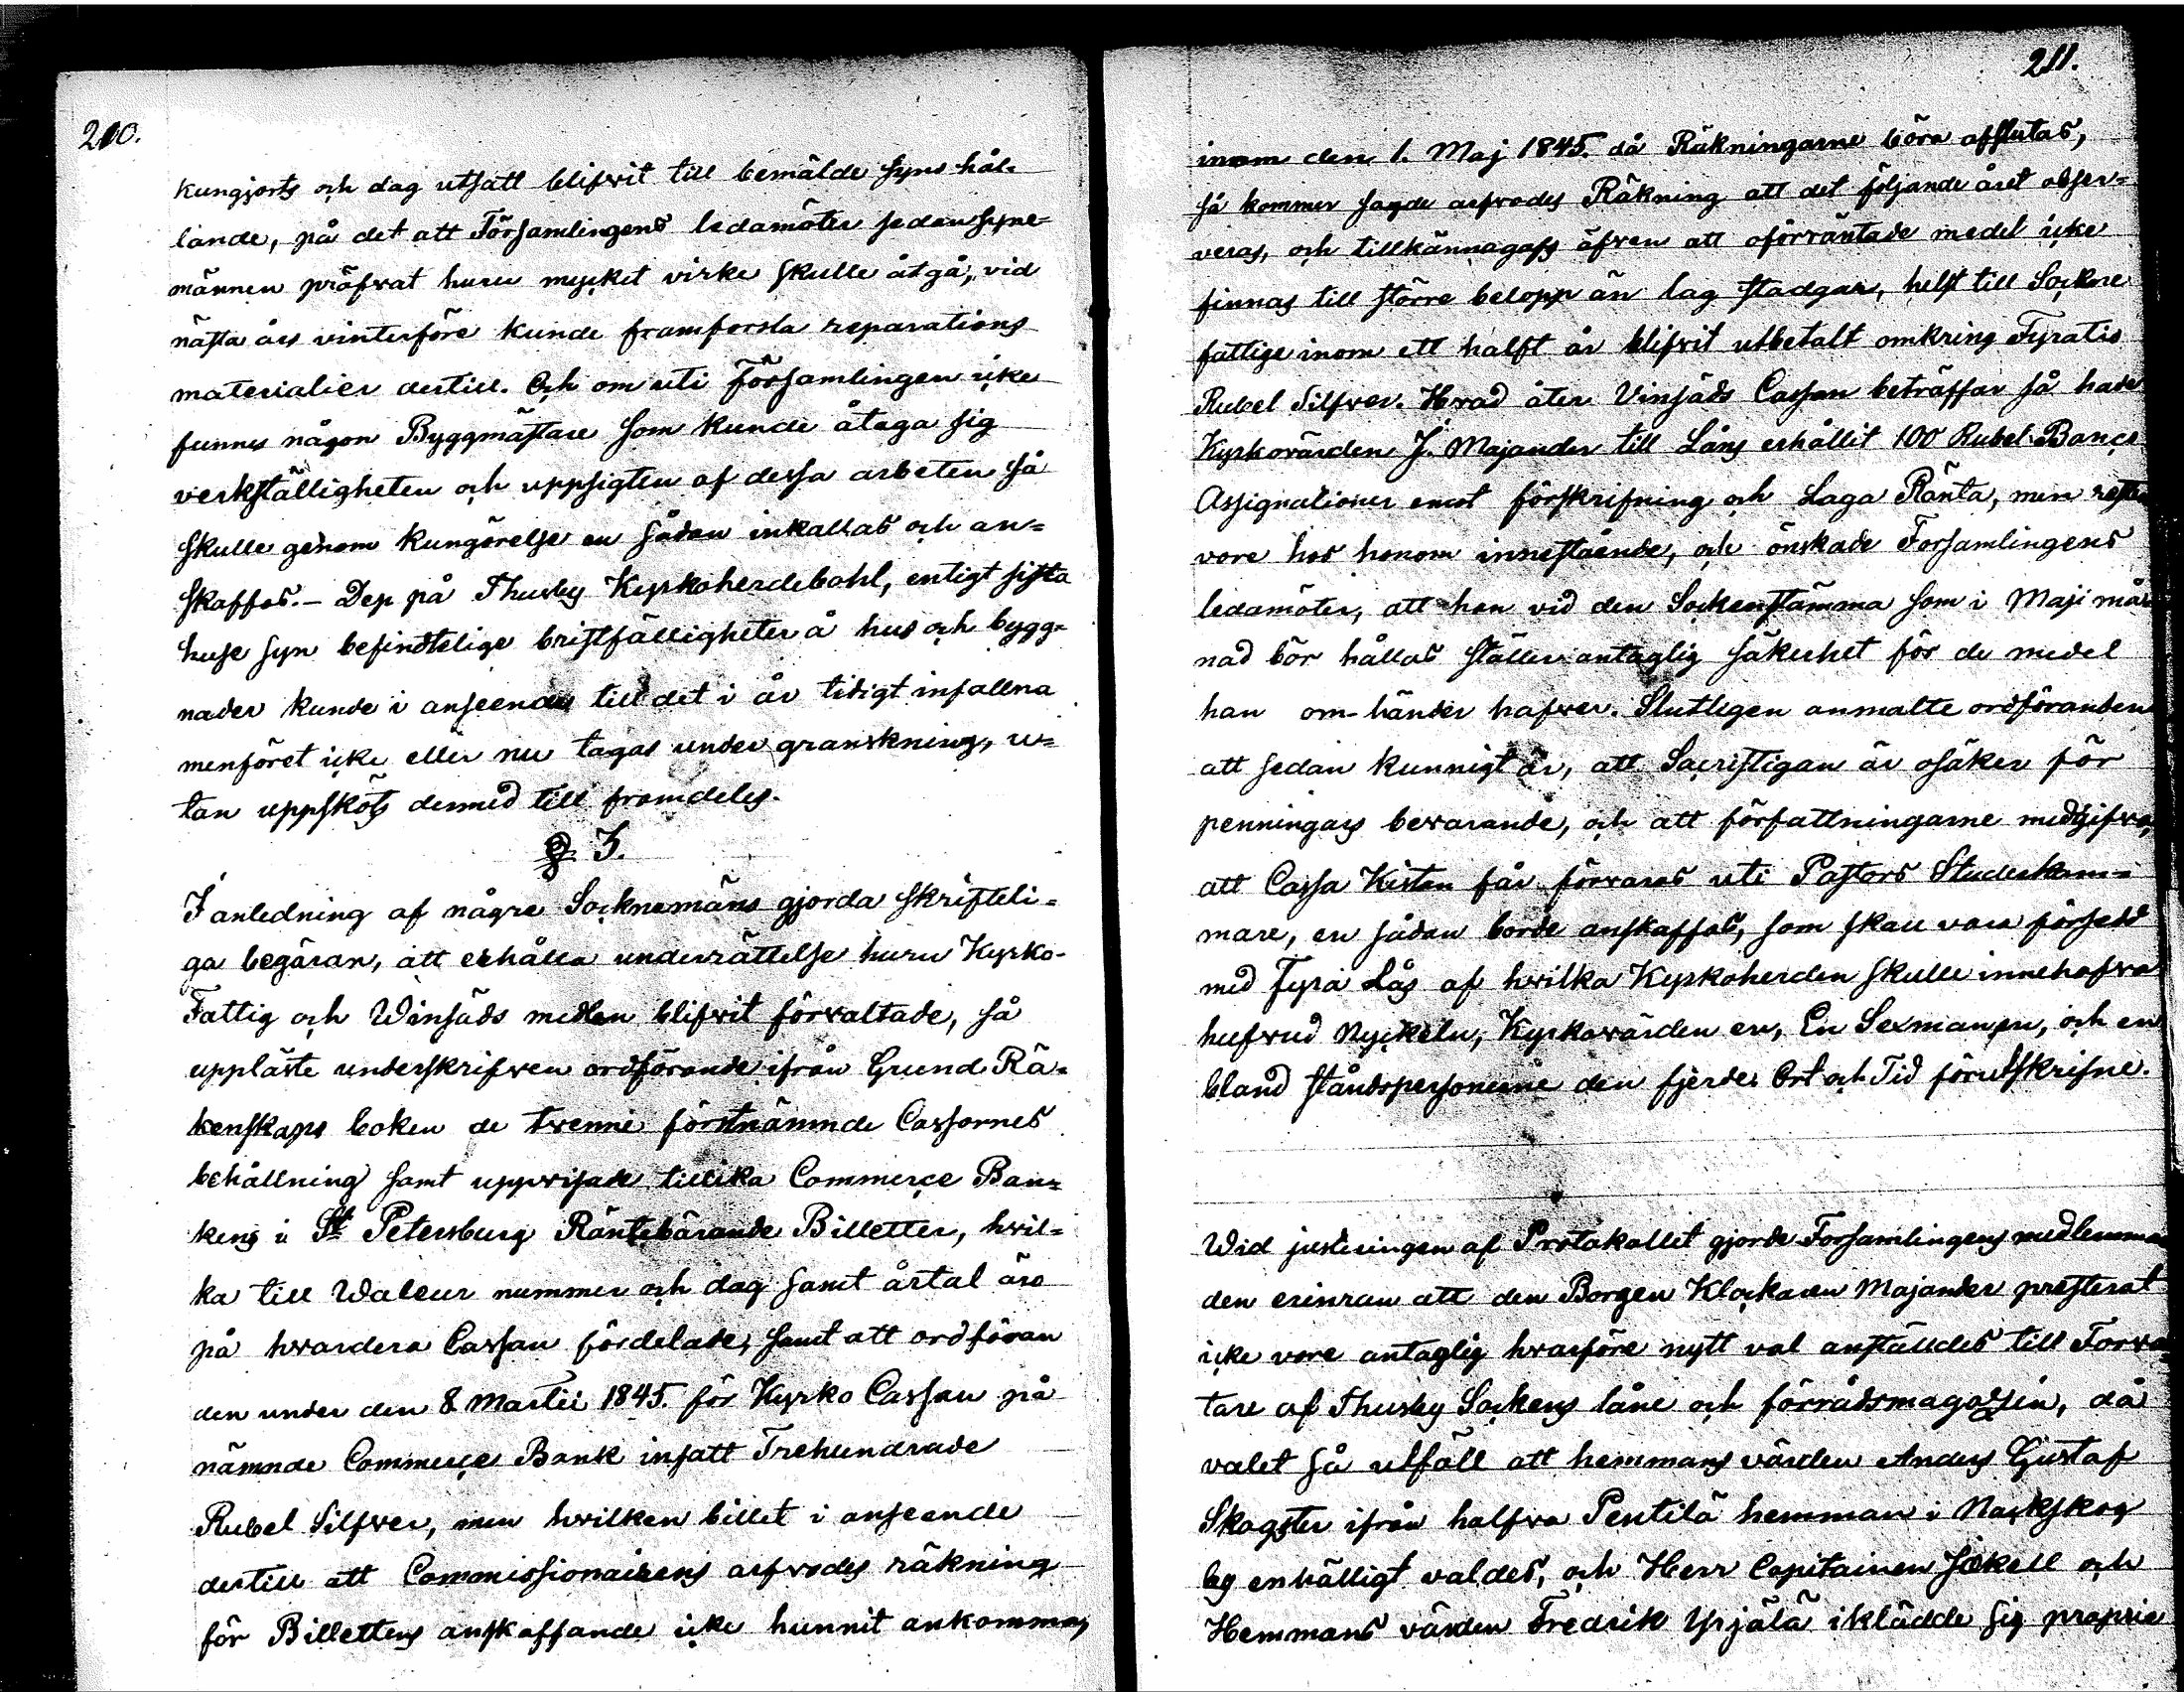 210.
kungjorts och dag utsatt blifvit till bemälde syns hål-
lande, på det att Församlingens ledamöter sedan syne-
männen pröfvat huru mycket virke skulle åtgå, vid
nästa års vinterföre kunde framforsla reparations
materialier dertill. Och om uti församlingen icke
funnes någon Byggmästare som kunde åtaga sig
verkställigheten och uppsigten af dessa arbeten så
skulle genom kungörelse en sådan inkallas och an-
skaffas. – De på Thusby Kyrkoherdebohl, enligt sista
huse syn befindtelige bristfälligheter å hus och bygg-
nader kunde i anseende till det i år tidigt infallna
menföret icke eller nu tagas under granskning, u-
tan uppsköts dermed till framdeles.
§ 3.
I anledning af någre Socknemäns gjorda skrifteli-
ga begäran, att erhålla underrättelse huru Kyrko-
Fattig och Winsäds medlen blifvit förvaltade, så
uppläste underskrifven ordförande ifrån Grund Rä-
kenskaps boken de tvenne förstnämnde Cassornes
behållning samt uppvisade tillika Commerce Ban-
kens i St Petersburg Räntebärande Billetter, hvil-
ka till Waleur nummer och dag samt årtal äro
på hvardera Cassan fördelade, samt att ordföran
den under den 8 Martii 1845. för Kyrko Cassan på
nämnde Commerce Bank insatt Trehundrade
Rubel Silfver, men hvilken billet i anseende
dertill att Commissionairens arfvodes räkning
för Billettens anskaffande icke hunnit ankomma,
211.
inom den 1. Maj 1845. då Räkningarne böra afslutas,
så kommer sagde arfvodes Räkning att det följande året obser-
veras, och tillkännagafs äfven att oförräntade medel icke
finnas till större belopp än lag stadgar, helst till Sockne
fattige inom ett halft år blifvit utbetalt omkring Fyratio
Rubel Silfver. Hvad åter Vinsäds Cassan beträffar så hade
Kyrkovärden J. Majander till Låns erhållit 100 Rubel Banco
Assignationer emot förskrifning och Laga Ränta, men resten
vore hos honom innestående, och önskade Forsamlingens
ledamöter, att han vid den Sockenstämma som i Maji må-
nad bör hållas ställer antaglig säkerhet för de medel
han om-händer hafver. Slutligen anmälte ordföranden
att sedan kunnigt är, att Sacristigan är osäker för
penningars bevarande, och att författningarne medgifva,
att Cassa Kistan får förvaras uti Pastors Studerkam-
mare, en sådan borde anskaffas, som skall vara försedd
med Fyra Lås af hvilka Kyrkoherden skulle innehafva
hufvud Nyckeln, Kyrkovärden en, En Sexman en, och en
bland ståndspersonerne den fjerde. Ort och Tid förutskrifne.
Wid justeringen af Protokollet gjorde Forsamlingens medlemmar
den erinran att den Borgen Klockaren Majander presterat
icke vore antaglig hvarföre nytt val anställdes till Forval
tare af Thusby Sockens låne och förrådsmagazin, då
valet så utföll att hemmans värden Anders Gustaf
Skogster ifrån halfva Pentilä hemman i Nackskog
by enhälligt valdes, och Herr Capitainen Jäkell och
Hemmans värden Fredrik Yrjälä iklädde sig proprie